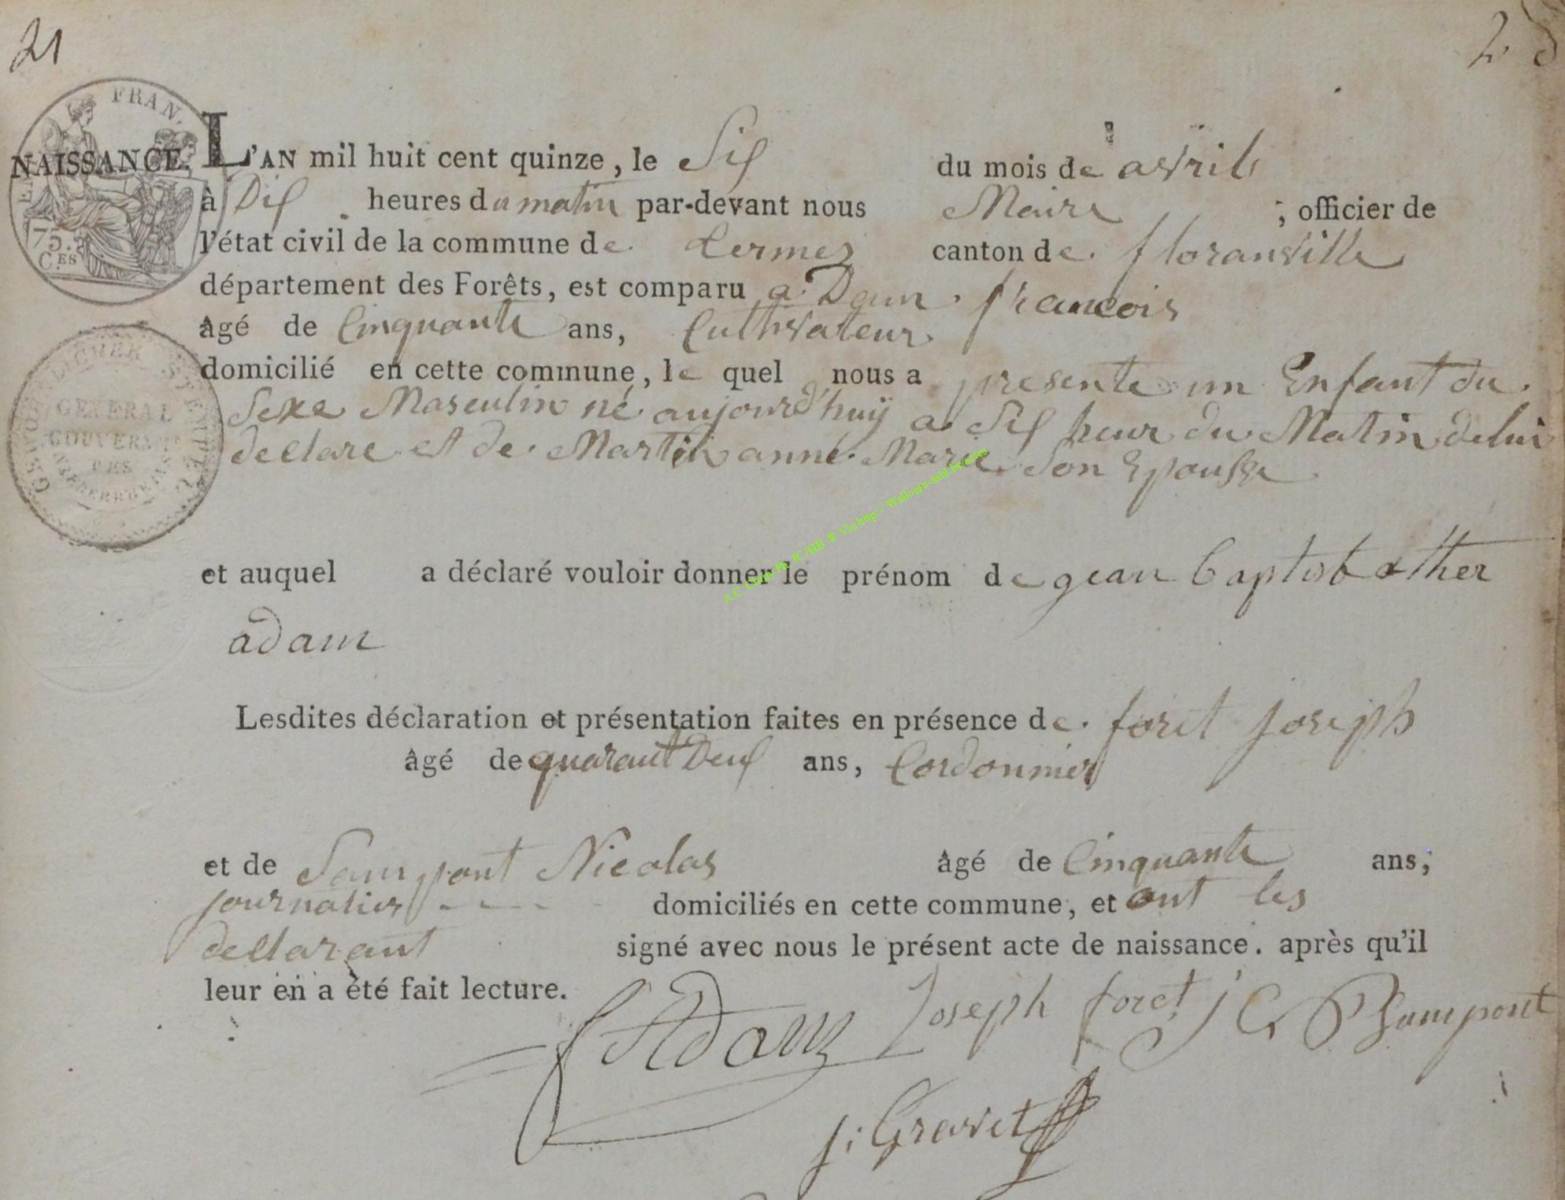 21
NAISSANCE. L'AN mil huit cent quinze, le Six du mois de avril
à Dix heures du matin par-devant nous Maire, officier de
l'état civil de la commune de termes canton de floranville
département des Forêts, est comparu aDam francois
âgé de Cinquante ans, Cultivateur
domicilié en cette commune, le quel nous a presente un Enfant du
Sexe Masculin né aujourd'huÿ a Six heur du Matin de lui
declare et de Martin anne Marie Son Epousse
et auquel a déclaré vouloir donner le prénom de gean baptist
adam
Lesdites déclaration et présentation faites en présence de foret joseph
âgé de quarant Deux ans, Cordonnier
et de Saupont Nicolas âgé de Cinquante ans,
journalier domiciliés en cette commune, et ont les
declarant signé avec nous le présent acte de naissance. après qu'il
leur en a été fait lecture.
f Adam Joseph foret
j: Gravet
FRAN.
75.
C.ES
GENERAL
GOUVERN
DES